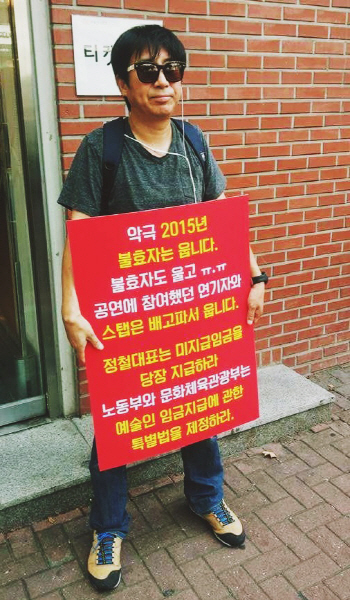 티켓
악극 2015년
불효자는 웁니다.
불효자도 울고 ㅠ.ㅠ
공연에 참여했던 연기자와
스탭은 배고파서 웁니다.
정철대표는 미지급임금을
당장 지급하라
노동부와 문화체육관광부는
예술인 임금지급에 관한
특별법을 제정하라.